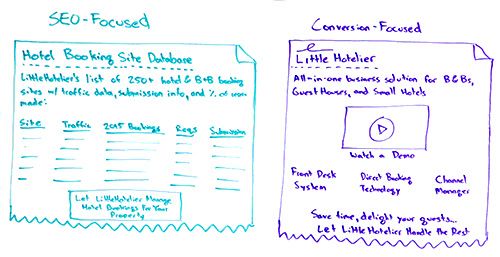 SEO-Focused
Hotel Booking Site Database
LittleHotelier's list of 250+ hotel & B+B booking
sites w/ traffic data, submission info, and % of rooms
made:
Site Traffic 2015 Bookings Reqs Submission
Let LittleHotelier Manage
Hotel Bookings For Your
Property
Conversion-Focused
Little Hotelier
All-in-one business solution for B&Bs,
Guest Houses, and Small Hotels
Watch a Demo
Front Desk Direct Booking Channel
System Technology Manager
Save time, delight your guests...
Let Little Hotelier Handle the Rest